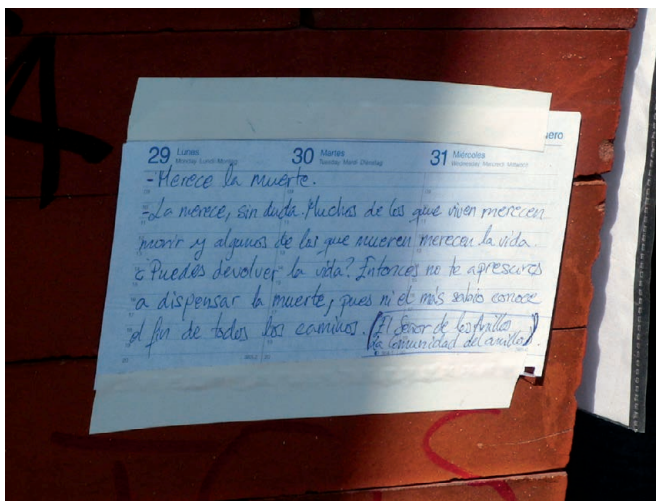 A
enero
29 Lunes 30 Martes 31 Miércoles
Monday Lundi Montag Tuesday Mardi Dienstag Wednesday Mercredi Mittwoch
- Merece la muerte.
- La merece, sin duda. Muchos de los que viven merecen
morir y algunos de los que mueren merecen la vida.
¿Puedes devolver la vida? Entonces no te apresures
a dispensar la muerte, pues ni el más sabio conoce
el fin de todos los caminos. (El Señor de los Anillos
La comunidad del anillo).